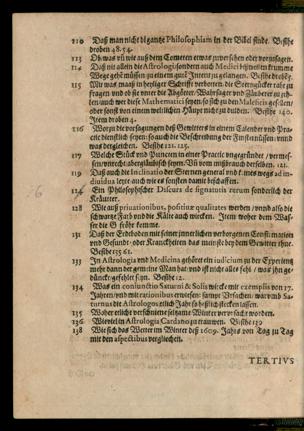 110 Daß man nicht di gantze Philosophiam in der Bibel finde. Besihe
droben 48. 54.
113 Ob was vñ wie auß dem Cometen etwas zuversehen oder vorzusagen.
114 Daß nit allein die Astrologi, sondern auch Medici bißweilen krumme
Wege gehē müssen zu einem gutē Intent zu gelangen. Besihe drobē
115 Wie was maaß in heyliger Schrifft verboten, die Sterngücker raht zu
fragen vnd ob sie vnter die Abgötter, Wahrsager vnd Zäuberer zu zeh-
len/auch wer diese Mathematici seyen, so sich zu den Maleficis gesellen/
oder sonst von einem weltlichen Häupt nicht zu dulden. Besihe 140.
Item droben 4.
116 Wozu die vorsagungen deß Gewitters in einem Calender vnd Pra-
ctic dienstlich seyen: so auch die Beschreibung der Finsternüssen/ vnnd
was dergleichen. Besihe 121. 125.
117 Welche Stück vnd Puncten in einer Practic vngegründet/ vermes-
sen/vnrecht/abergläubisch seyen, Vñ vom mißbrauch derselben. 121.
119 Daß auch die Inclination der Sternen general vnd k eines wegs ad in-
dividua leyte, auch wie es sonsten damit beschaffen.
124 Ein Philosophischer Discurs de signatuis rerum sonderlich der
Kräutter.
128 Wie auß privationibus, positivæ qualitates werden / vnnd also die
schwartze Farb vnd die Kälte auch wircken. Item woher dem Was-
ser die Gefröhr komme.
131 Daß der Erdtboden mit seiner innerlichen verborgenen Constitution
vnd Gesund- oder Kranckheiten das meinste bey dem Gewitter thue.
Besihe 135. 61.
133 In Astrologia vnd Medicina gehöret ein iudicium zu der Experientz
mehr dann der gemeine Man hat vnd ist nicht alles fehl / was ihn ge-
dünckt gefehlet sein. Besihe 12.
134 Was ein coniunctio Saturni & Solis wircke mit exemplis von 17.
Jahren/vnd mit rationibus erwiesen: sampt Vrsachen, warumb Sa-
turnus die Astrologos etlich Jahr hero stich stecken lassen.
135 Woher etliche verschiene seltzame Winter verursacht worden.
136 Wie viel in Astrologia Cardano zu trawen. Besihe 139
138 Wie sich das Wetter im Winter deß 1609. Jahrs von Tag zu Tag
mit den aspectibus vergliechen.
TERTIVS